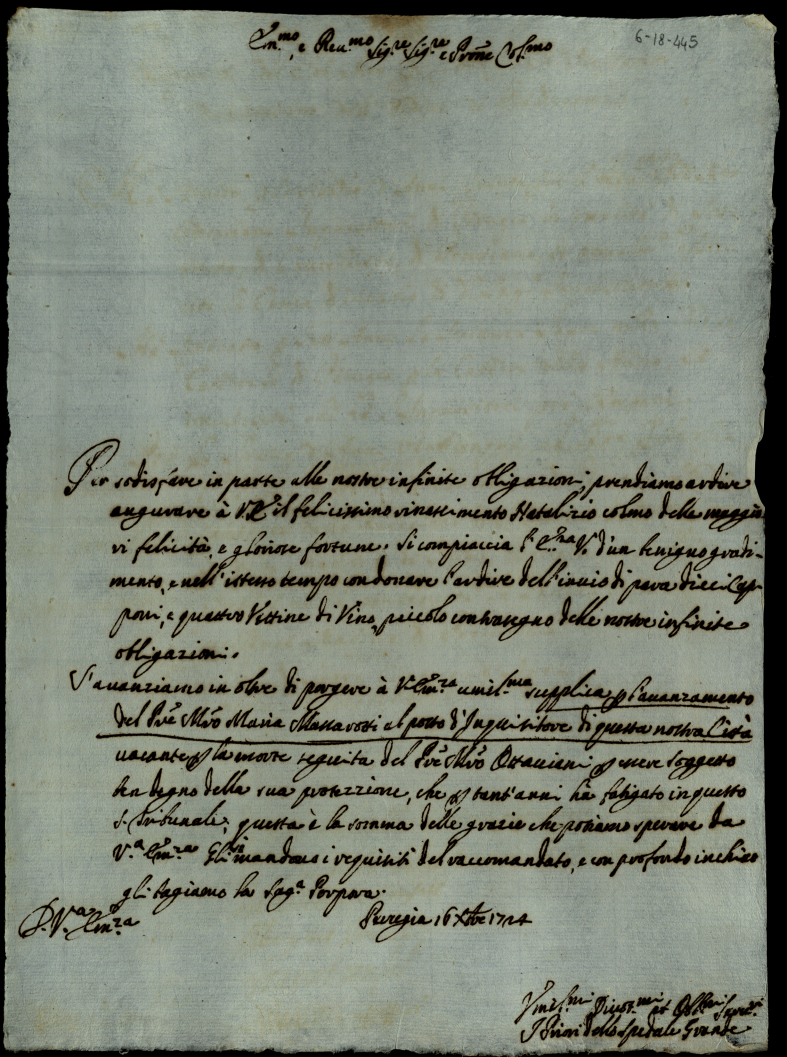 6-18-445
Em.mo, e Reu.mo Sig.re Sig.re e Prone Col.mo
Per sodisfare in parte alle nostre infinite obligazioni, prendiamo ardire
augurare à V.E. il felicissimo rinascimento Natalizio colmo delle maggio
ri felicità, e gloriose fortune. Si compiaccia l'Em.za V.a d'un benigno gradi-
mento, e nell'istesso tempo condonare l'ardire dell'inuio di para dieci Cap-
poni, e quattro Vettine di Vino, piccolo contrasegno delle nostre infinite
obligazioni.
S'auanziamo in oltre di porgere à V. Em.za umil.ma supplica p l'auanzamento
del Pre Mro Maria Massarotti al posto d'Inquisitore di questa nostra Città
uacante p la morte seguita del Pre Mro Ottauiani p essere soggetto
ben degno della sua protezzione, che p tant'anni hà fatigato in questo
S. Tribunale; questa è la somma delle grazie che potiamo sperare da
V.a Em.za Gli si mandano i requisiti del raccomandato, e con profondo inchino
gli bagiamo la Sag.a Porpora.
D. V.a Em.za
Perugia 16 Xbre 1724
Umil.mi Diuot.mi et Obl.mi Seru.ri
I Priori dello Spedale Grande